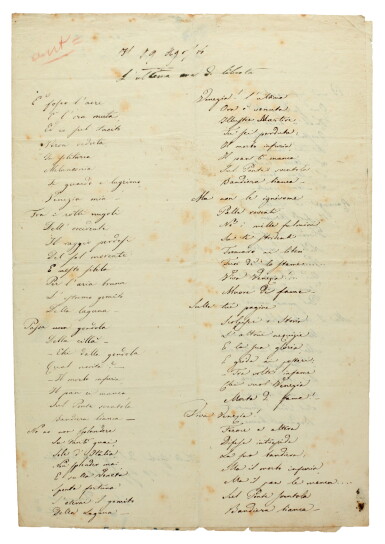 L'ultima ora di libertà
È fosco l'aere
È l'ora muta
Ed io sul tacito
Veron seduto
In solitaria
Melanconia
Ti guardo e lagrimo
Venezia mia —
Fra i rotti nugoli
Dell'occidente
Il raggio perdesi
Del sol morente
E mesto sibila
Per l'aria bruna
L'ultimo gemito
Della laguna —
Passa una gondola
Della città —
— Ehi della gondola
Qual novità? —
— Il morbo infuria
Il pan ci manca
Sul Ponte sventola
Bandiera bianca —
No no non splendere
Su tanti guai
Sole d'Italia
Non splender mai
E sulla Veneta
Spenta fortuna
il gemito
Della laguna —
Venezia! l'ultima
Ora è venuta
Illustre Martire
Tu sei perduta
Il morbo infuria
Il pan ti manca
Sul Ponte sventola
Bandiera bianca —
Ma non le ignivome
Palle roventi
Nè i mille fulmini
Su te stridenti
Troncaro ai liberi
lo stame...
Viva Venezia!
Muore di fame —
Sulle tue pagine
Scolpisci o Storia
L'altrui nequizie
E la sua gloria
E grida ai posteri
Tre volte infame
Chi vuol Venezia
Morta di fame!
Viva Venezia!
Feroce e altiera
Difese intrepida
La sua bandiera
Ma il morbo infuria
Ma il pan le manca
Sul Ponte sventola
Bandiera bianca —